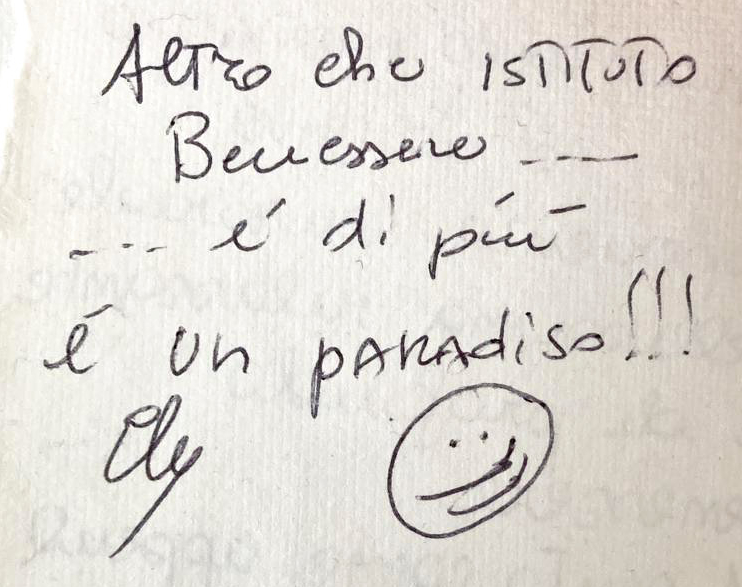 Altro che ISTITUTO
Benessere ----
--- é di più
é un pARAdiso!!!
Ely